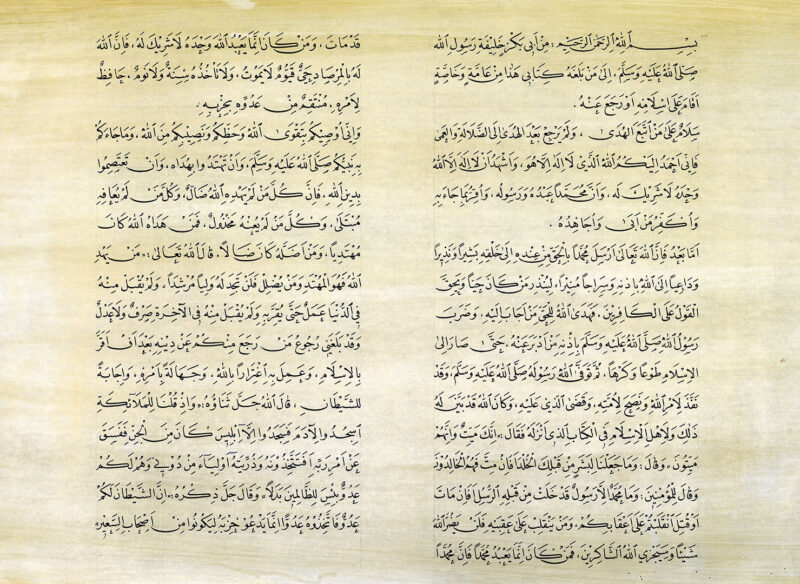 بسم الله الرحمن الرحيم: من أبي بكر خليفة رسول الله
صلى الله عليه وسلم، إلى من بلغه كتابي هذا من عامة وخاصة
أقام على إسلامه أو رجع عنه.
سلام على من اتبع الهدى، ولم يرجع بعد الهدى إلى الضلالة والعمى
فإني أحمد إليكم الله الذي لا إله إلا هو، وأشهد أن لا إله إلا الله
وحده لا شريك له، وأن محمداً عبده ورسوله، وأقر بما جاء به
وأكفر من أبى وأجاهده.
أما بعد فإن الله تعالى أرسل محمداً بالحق من عنده إلى خلقه بشيراً ونذيراً
وداعياً إلى الله بإذنه وسراجاً منيراً، لينذر من كان حياً ويحق
القول على الكافرين، فهدى الله للحق من أجاب إليه، وضرب
رسول الله صلى الله عليه وسلم بإذنه من أدبر عنه، حتى صار إلى
الإسلام طوعاً وكرهاً، ثم توفى الله رسوله صلى الله عليه وسلم، وقد
نفذ لأمر الله ونصح لأمته، وقضى الذي عليه، وكان الله قد بين له
ذلك ولأهل الإسلام في الكتاب الذي أنزله فقال: «إنك ميت وإنهم
ميتون» وقال: وما جعلنا لبشر من قبلك الخلد أفإن مت فهم الخالدون
وقال للمؤمنين: وما محمد إلا رسول قد خلت من قبله الرسل أفإن مات
أو قتل انقلبتم على أعقابكم، ومن ينقلب على عقبيه فلن يضر الله
شيئاً وسيجزي الله الشاكرين، فمن كان إنما يعبد محمداً فإن محمداً
قد مات، ومن كان إنما يعبد الله وحده لا شريك له، فإن الله
له بالمرصاد حي قيوم لا يموت، ولا تأخذه سنة ولا نوم، حافظ
لأمره، منتقم من عدوه بحزبه.
وإني أوصيكم بتقوى الله وحظكم ونصيبكم من الله، وما جاءكم
به نبيكم صلى الله عليه وسلم، وأن تهتدوا بهداه، وأن تعتصموا
بدين الله، فإن كل من لم يهده الله ضال، وكل من لم يعافه
مبتلى، وكل من لم يعنه مخذول، فمن هداه الله كان
مهتدياً، ومن أضله كان ضالاً، قال الله تعالى: «من يهد
الله فهو المهتد ومن يضلل فلن تجد له ولياً مرشداً» ولم يقبل منه
في الدنيا عمل حتى يقر به ولم يقبل منه في الآخرة صرف ولا عدل
وقد بلغني رجوع من رجع منكم عن دينه بعد أن أقر
بالإسلام، وعمل به اغتراراً بالله، وجهالة بأمره، وإجابة
للشيطان، قال الله جل ثناؤه: وإذ قلنا للملائكة
اسجدوا لآدم فسجدوا إلا إبليس كان من الجن ففسق
عن أمر ربه أفتتخذونه وذريته أولياء من دوني وهم لكم
عدو بئس للظالمين بدلاً» وقال جل ذكره: «إن الشيطان لكم
عدو فاتخذوه عدواً إنما يدعو حزبه ليكونوا من أصحاب السعير»